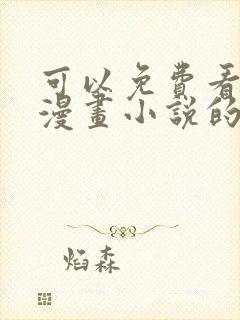 可以免費看
漫畫小說的
焰森